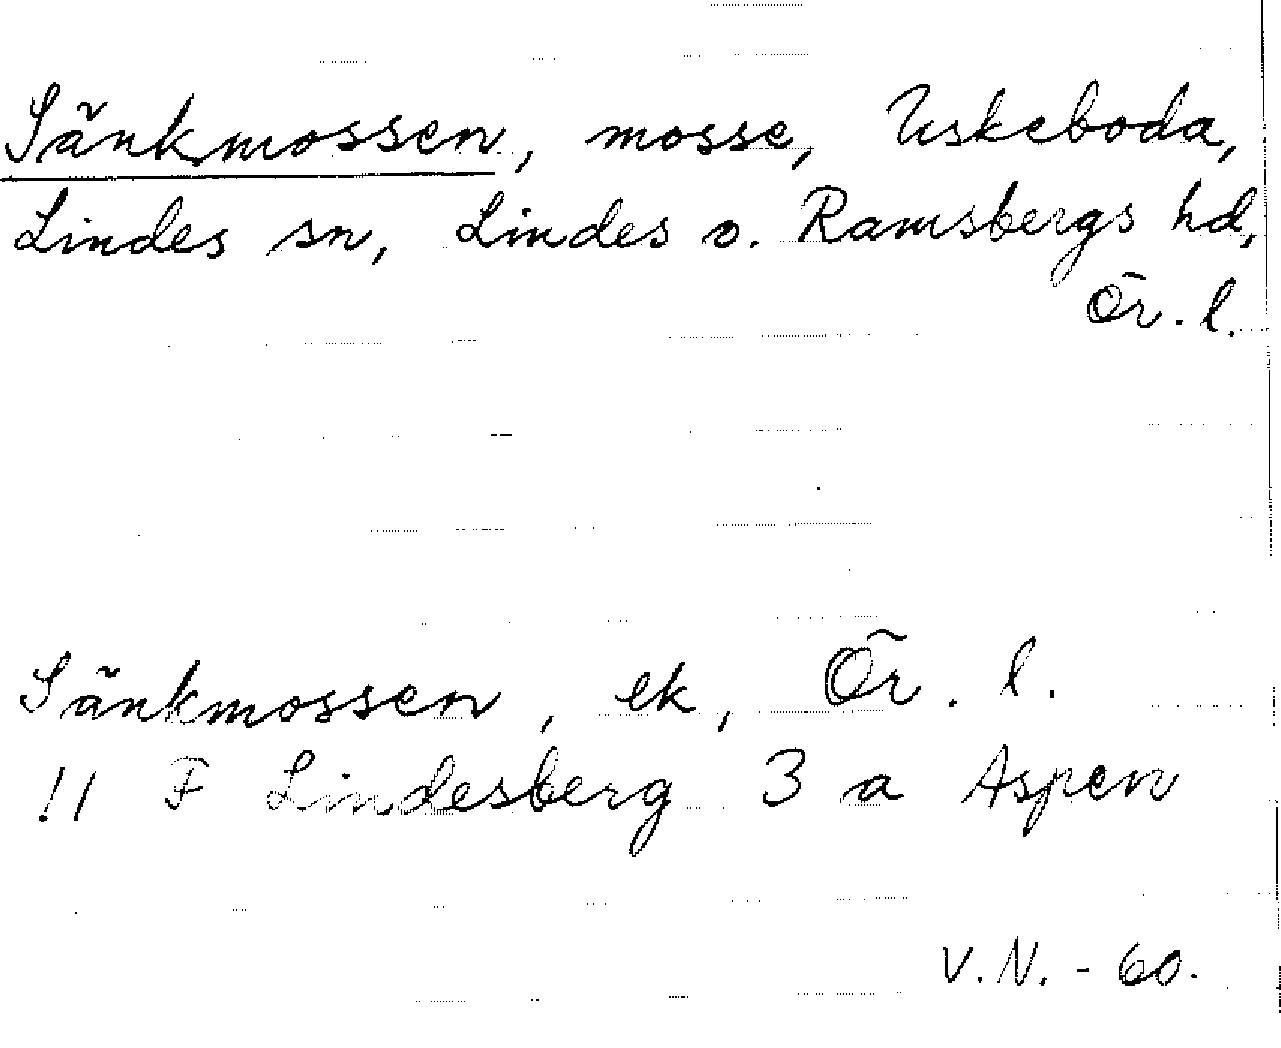 Sänkmossen, mosse, Uskeboda,
Lindes sn, Lindes o. Ramsbergs hd,
Ör. l.
Sänkmossen, ek, Ör. l.
!! F Lindesberg 3 a Aspen
V.N. - 60.